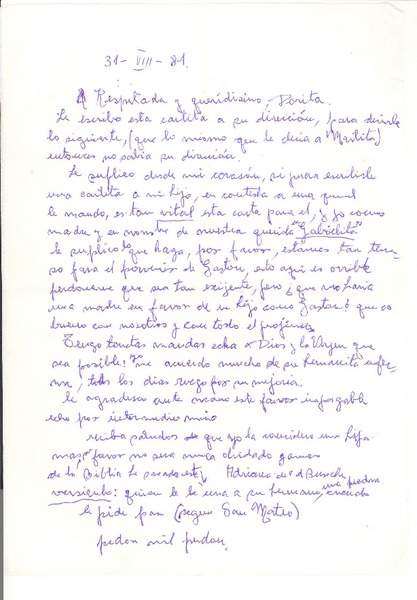 31 - VIII - 81
Respetada y queridisima, Dorita.
Le escribo esta cartita a su dirección, para decirle
lo siguiente, (que lo mismo que le decia a Martita)
entonces no sabia su dirección.
Le suplico desde mi corazón, si puede escribirle
una cartita a mi hijo, en contesta a una que el
le mando, es tan vital esta carta para el, y yo como
madre y en nombre de nuestra querida "Gabrielita"
le suplico lo que haga, por favor, estamos tan
para el porvenir de Gaston, esto aqui es orrible
perdoneme que sea tan exijente, pero ¿que no haria
una madre en favor de un hijo como Gaston? que es
bueno con nosotros y con todo el projimo
Tengo tantas mandas echa a Dios y la Virjen que
sea posible! Yo me acuerdo mucho de su hermanita
todos los dias ruego por su mejoria.
le agradesco este favor
echo por intermedio mio
reciba saludos de que ojala la considere una hija
mas, favor no sera nunca olvidado jamas
de la Biblia le mando este Adriana de
versiculo: quien le da una piedra a su hermano, cuando
le pide pan (segun San Mateo)
pedon mil perdon